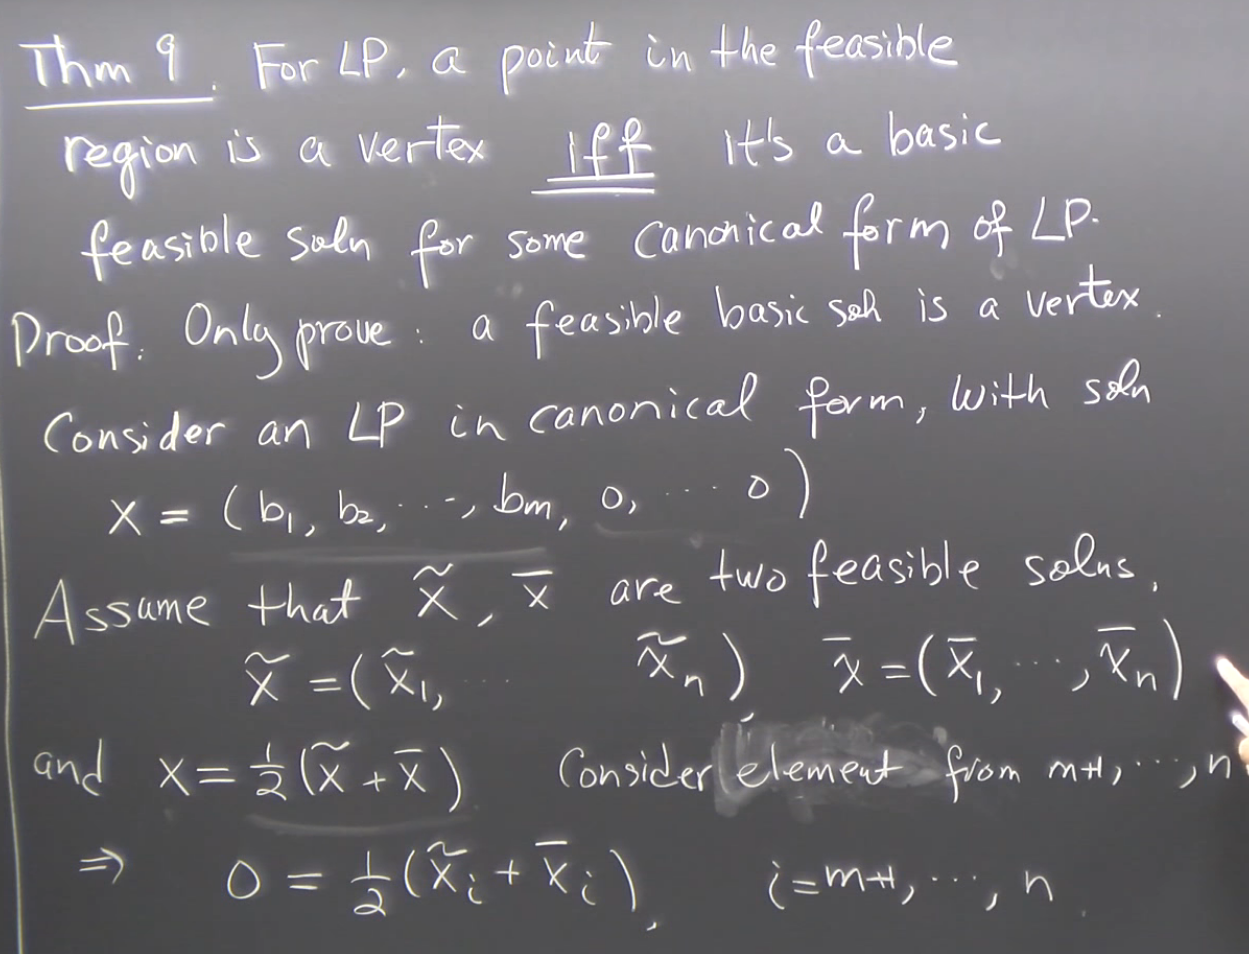 Thm 9. For LP, a point in the feasible
region is a vertex iff it's a basic
feasible soln for some canonical form of LP.
Proof: Only prove: a feasible basic soln is a vertex.
Consider an LP in canonical form, with soln
x = (b₁, b₂, ⋯, bₘ, 0, ⋯ 0)
Assume that x̃, x̄ are two feasible solns,
x̃ = (x̃₁, ⋯ x̃ₙ), x̄ = (x̄₁, ⋯, x̄ₙ)
and x = ½(x̃ + x̄) Consider element from m+1, ⋯, n
⇒ 0 = ½(x̃ᵢ + x̄ᵢ), i = m+1, ⋯, n.